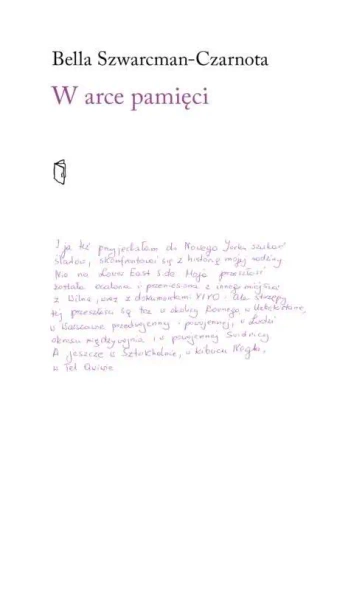 Bella Szwarcman-Czarnota
W arce pamięci
I ja też przyjechałam do Nowego Yorku szukać
śladów, skonfrontować się z historią mojej rodziny
Nie na Lower East Side Moja przeszłość
została ocalona i przeniesiona z innego miejsca
z Wilna, wraz z dokumentami YIVO Ale strzępy
tej przeszłości są też w okolicy Równego, w Uzbekistanie,
w Warszawie przedwojennej i powojennej, w Łodzi
okresu międzywojnia i w powojennej Świdnicy
A jeszcze w Sztokholmie, w kibucu Negba,
w Tel Awiwie